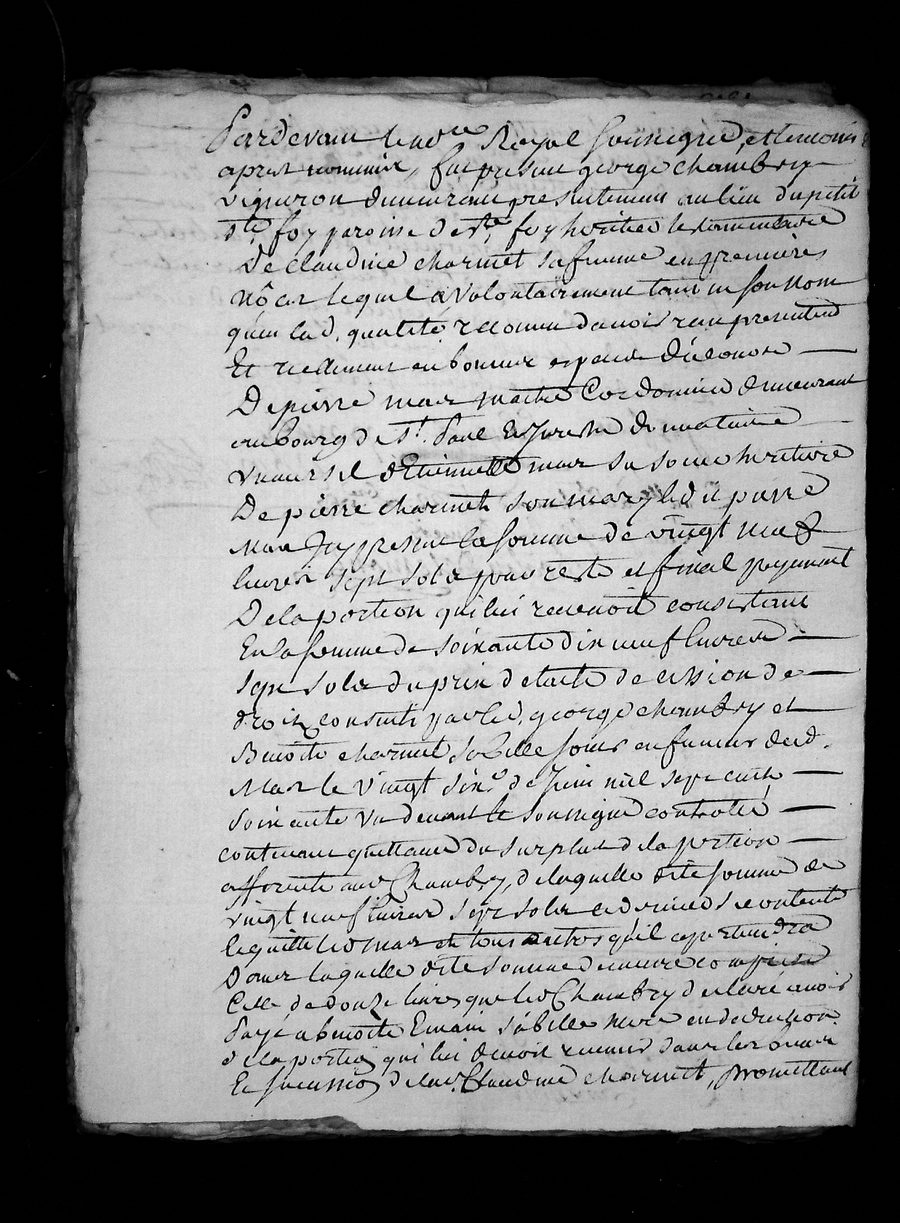 Pardevant le no.re Royal soussigné, et temoins
apres nommés, fut present george chambry
vigneron demeurant presentement au lieu du petit
s.te foy paroisse de s.te foy heritier testamentaire
De claudine charmet sa femme en premieres
nôces lequel a volontairement tant en son nom
qu'en lad. qualité, reconnu d'avoir reçu presentement
Et reellement en bonnes especes de
De pierre mas maitre Cordonnier demeurant
au bourg de s.t Paul En Jarest donnataire
universel d'Etiennette mas sa soeur heritiere
De pierre charmet son mary led. pierre
Mas Jcy present la somme de vingt neuf
livres sept sols pour reste et final payement
De la portion qui lui revenoit consistant
En la somme de soixante dix neuf livres
sept sols du prix d'acte de cession de
droix consenti par led. george chambry et
Benoite charmet sa belle soeur en faveur dud.
Mas le vingt six.e de Juin mil sept cents
soixante un devant le soussigné controllé
contenant quittance du surplus de la portion
afferente aud. Chambry, de laquelle dite somme de
vingt neuf livres sept sols ce dernier se contente
le quitte led. mas et tous autres qu'il appartiendra
Dans laquelle dite somme demeure comprise
Celle de douze livres que led. Chambry declare avoir
Payé a benoite Emain sa belle mere en deduction
de la portion qui lui devoit revenir dans les
Et succession de lad. Claudine charmet, promettant